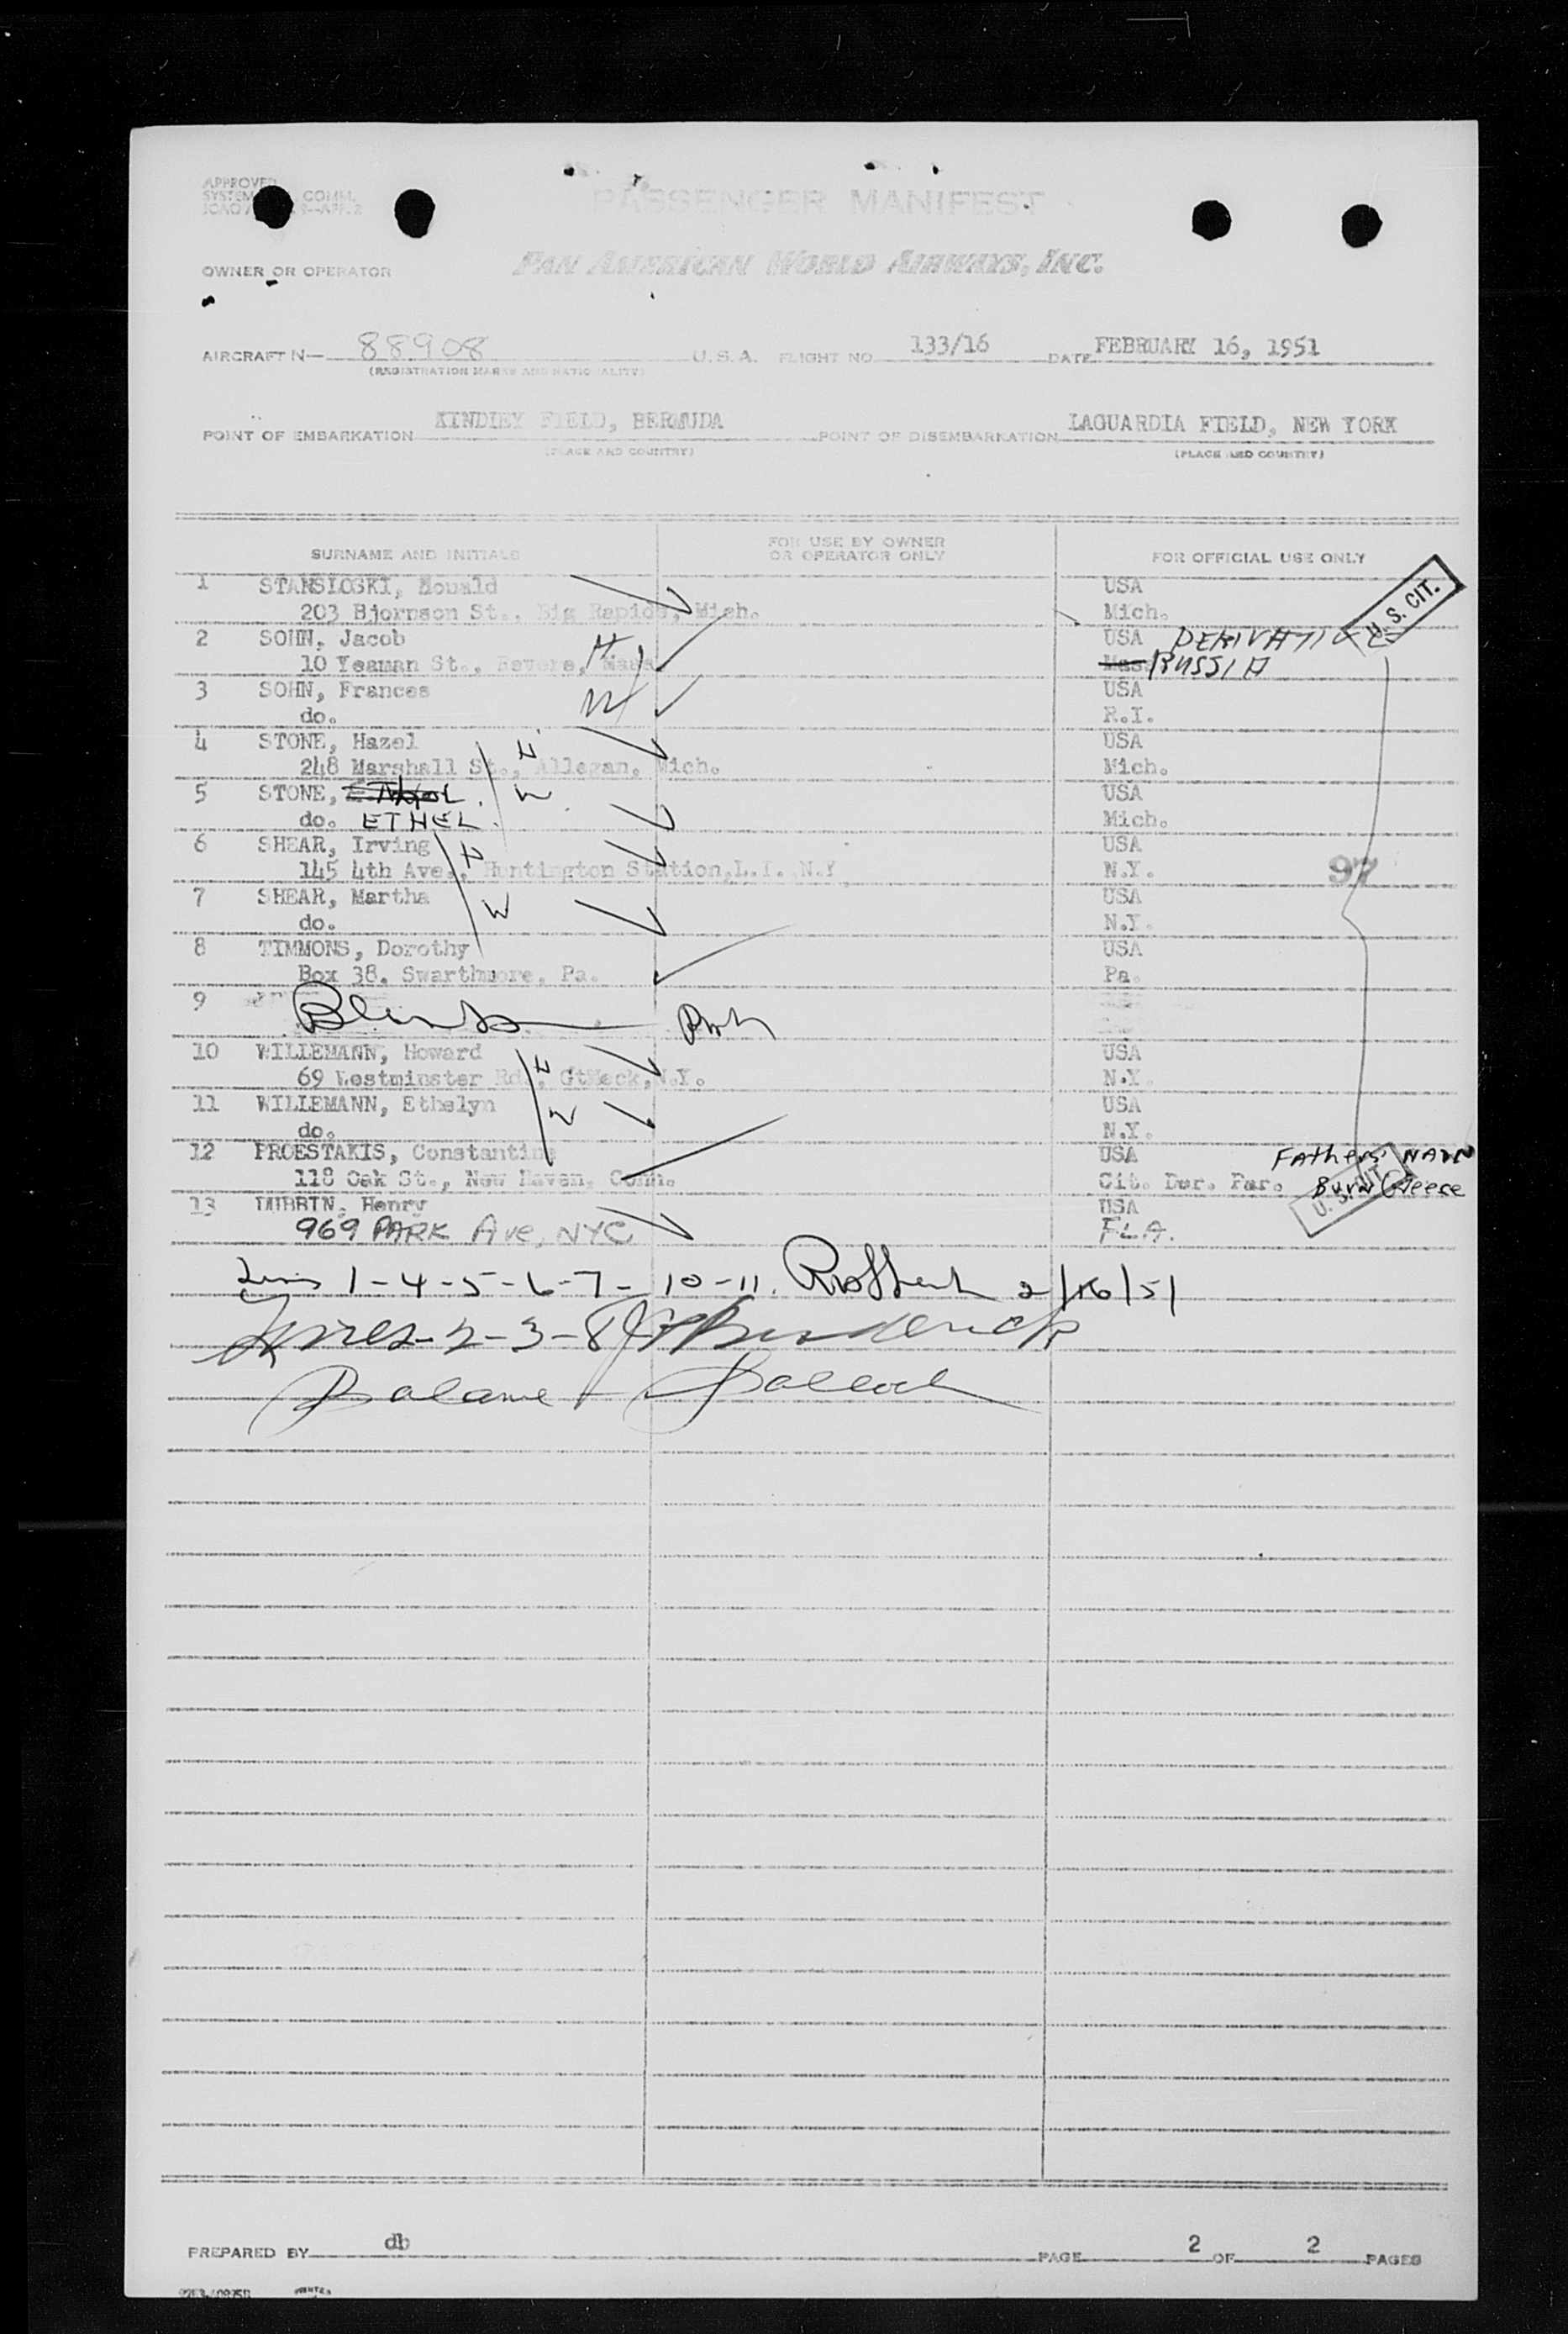 PASSENGER MANIFEST
OWNER OR OPERATOR PAN AMERICAN WORLD AIRWAYS, INC.
AIRCRAFT N— 88908 U.S.A. FLIGHT NO 133/16 DATE FEBRUARY 16, 1951
(REGISTRATION MARKS AND NATIONALITY)
POINT OF EMBARKATION KINDLEY FIELD, BERMUDA POINT OF DISEMBARKATION LAGUARDIA FIELD, NEW YORK
(PLACE AND COUNTRY) (PLACE AND COUNTRY)
SURNAME AND INITIALS FOR USE BY OWNER OR OPERATOR ONLY FOR OFFICIAL USE ONLY
1 USA
203 Bjornson St., Big Rapids, Mich. Mich. U. S. CIT.
2 SOHN, Jacob H USA DERIVATIVE
10 Yeaman St., Revere, Mass RUSSIA
3 SOHN, Frances W USA
do. R.I.
4 STONE, Hazel USA
248 Marshall St., Allegan, Mich. Mich.
5 STONE, W USA
do. ETHEL. Mich.
6 SHEAR, Irving H USA
145 4th Ave., Huntington Station,L.I. N.Y N.Y. 97
7 SHEAR, Martha W USA
do. N.Y.
8 TIMMONS, Dorothy USA
Box 38, Swarthmore, Pa. Pa.
9
10 WILLEMANN, Howard H USA
69 Westminster Rd., GtNeck,N.Y. N.Y.
11 WILLEMANN, Ethelyn W USA
do. N.Y.
12 PROESTAKIS, Constantine USA Fathers NATN
118 Oak St., New Haven, Conn. Cit. Der. Par. Burn Greese
13 DURBIN, Henry USA U. S. CIT.
969 PARK Ave, NYC FLA.
Lines 1-4-5-6-7-10-11. 2/16/51
Lines-2-3-8
Balance
PREPARED BY db PAGE 2 OF 2 PAGES